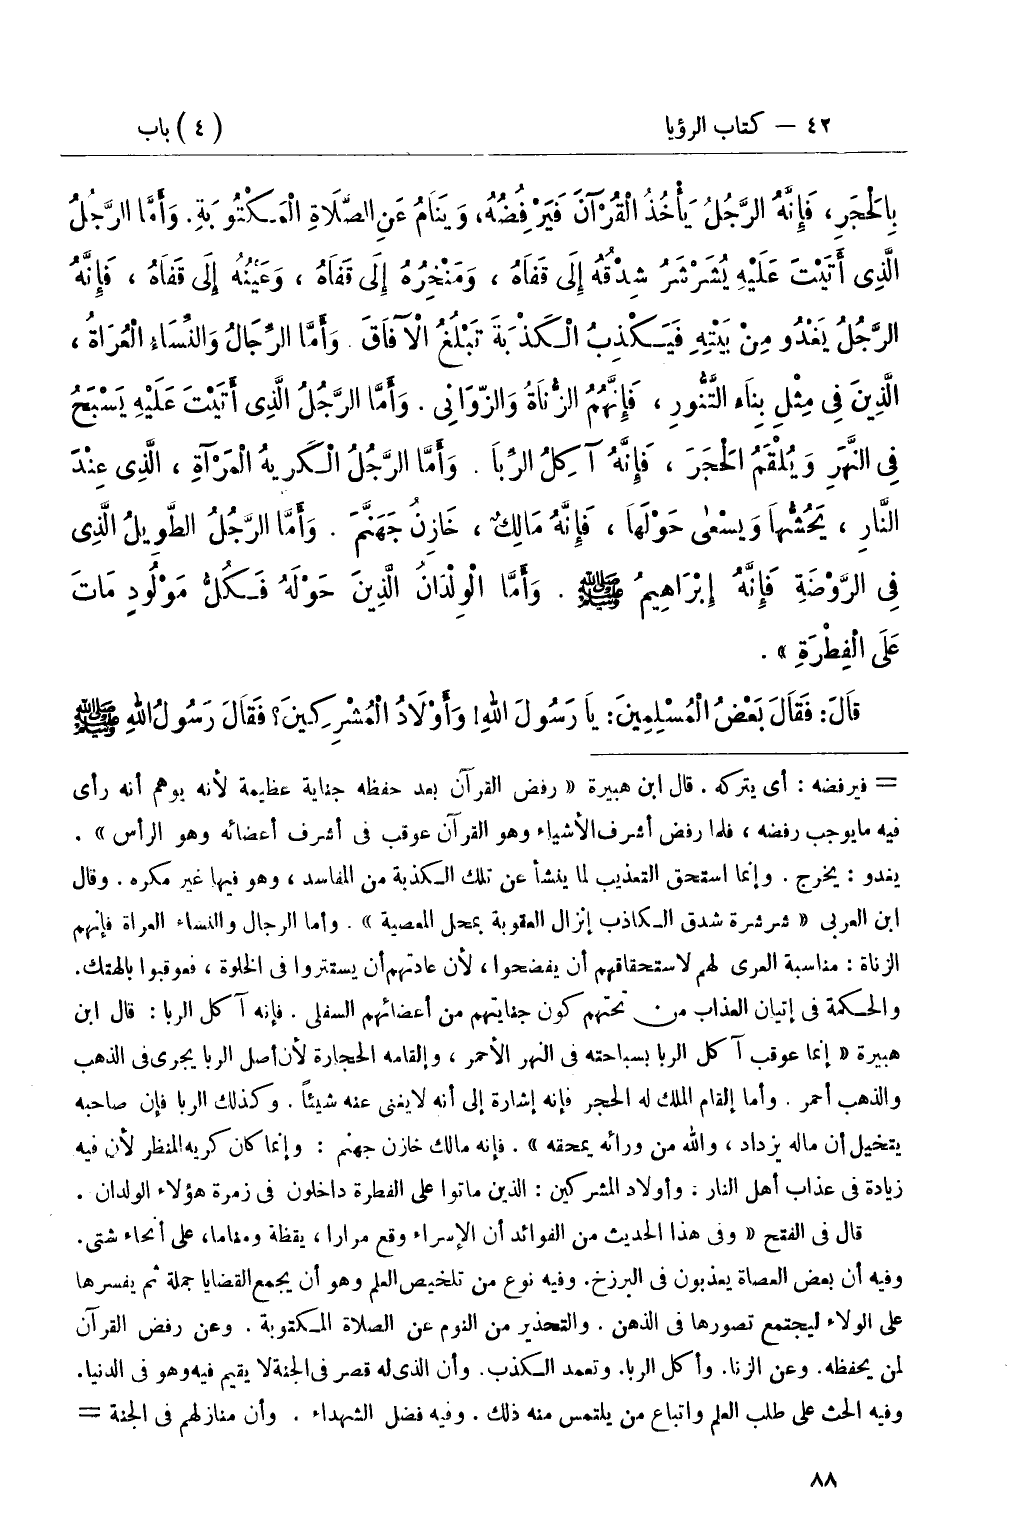 ٤٢ — كتاب الرؤيا (٤) باب
بِالْحَجَرِ، فَإِنَّهُ الرَّجُلُ يَأْخُذُ الْقُرْآنَ فَيَرْفِضُهُ، وَيَنَامُ عَنِ الصَّلَاةِ الْمَكْتُوبَةِ. وَأَمَّا الرَّجُلُ
الَّذِى أَتَيْتَ عَلَيْهِ يُشَرْشَرُ شِدْقُهُ إِلَى قَفَاهُ ، وَمَنْخِرُهُ إِلَى قَفَاهُ ، وَعَيْنُهُ إِلَى قَفَاهُ ، فَإِنَّهُ
الرَّجُلُ يَغْدُو مِنْ بَيْتِهِ فَيَكْذِبُ الْكَذْبَةَ تَبْلُغُ الْآفَاقَ . وَأَمَّا الرِّجَالُ وَالنِّسَاءِ الْعُرَاةُ ،
الَّذِينَ فِى مِثْلِ بِنَاءِ التَّنُّورِ ، فَإِنَّهُمُ الزُّنَاةُ وَالزَّوَانِى . وَأَمَّا الرَّجُلُ الَّذِى أَتَيْتَ عَلَيْهِ يَسْبَحُ
فِى النَّهَرِ وَيُلْقَمُ الْحَجَرَ ، فَإِنَّهُ آكِلُ الرِّبَا . وَأَمَّا الرَّجُلُ الْكَرِيهُ الْمَرْآةِ ، الَّذِى عِنْدَ
النَّارِ ، يَحُشُّهَا وَيَسْعَى حَوْلَهَا ، فَإِنَّهُ مَالِكٌ ، خَازِنُ جَهَنَّمَ . وَأَمَّا الرَّجُلُ الطَّوِيلُ الَّذِى
فِى الرَّوْضَةِ فَإِنَّهُ إِبْرَاهِيمُ ﷺ . وَأَمَّا الْوِلْدَانُ الَّذِينَ حَوْلَهُ فَكُلُّ مَوْلُودٍ مَاتَ
عَلَى الْفِطْرَةِ » .
قَالَ: فَقَالَ بَعْضُ الْمُسْلِمِينَ: يَا رَسُولَ اللهِ! وَأَوْلَادُ الْمُشْرِكِينَ؟ فَقَالَ رَسُولُ اللهِ ﷺ
= فيرفضه : أى يتركه . قال ابن هبيرة « رفض القرآن بعد حفظه جناية عظيمة لأنه يوهم أنه رأى
فيه مايوجب رفضه ، فلما رفض أشرف الأشياء وهو القرآن عوقب فى أشرف أعضائه وهو الرأس » .
يغدو : يخرج . وإنما استحق التعذيب لما ينشأ عن تلك الكذبة من المفاسد ، وهو فيها غير مكره . وقال
ابن العربى « شرشرة شدق الكاذب إنزال العقوبة بمحل المعصية » . وأما الرجال والنساء العراة فإنهم
الزناة : مناسبة العرى لهم لاستحقاقهم أن يفضحوا ، لأن عادتهم أن يستتروا فى الخلوة ، فعوقبوا بالهتك.
والحكمة فى إتيان العذاب من تحتهم كون جنايتهم من أعضائهم السفلى . فإنه آكل الربا : قال ابن
هبيرة « إنما عوقب آكل الربا بسباحته فى النهر الأحمر ، وإلقامه الحجارة لأن أصل الربا يجرى فى الذهب
والذهب أحمر . وأما إلقام الملك له الحجر فإنه إشارة إلى أنه لايغنى عنه شيئاً . وكذلك الربا فإن صاحبه
يتخيل أن ماله يزداد ، والله من ورائه يمحقه » . فإنه مالك خازن جهنم : وإنما كان كريه المنظر لأن فيه
زيادة فى عذاب أهل النار : وأولاد المشركين : الذين ماتوا على الفطرة داخلون فى زمرة هؤلاء الولدان .
قال فى الفتح « وفى هذا الحديث من الفوائد أن الإسراء وقع مرارا ، يقظة ومناما، على أنحاء شتى.
وفيه أن بعض العصاة يعذبون فى البرزخ. وفيه نوع من تلخيص العلم وهو أن يجمع القضايا جملة ثم يفسرها
على الولاء ليجتمع تصورها فى الذهن . والتحذير من النوم عن الصلاة المكتوبة . وعن رفض القرآن
لمن يحفظه. وعن الزنا. وأكل الربا. وتعمد الكذب. وأن الذى له قصر فى الجنة لا يقيم فيه وهو فى الدنيا.
وفيه الحث على طلب العلم واتباع من يلتمس منه ذلك . وفيه فضل الشهداء . وأن منازلهم فى الجنة =
٨٨